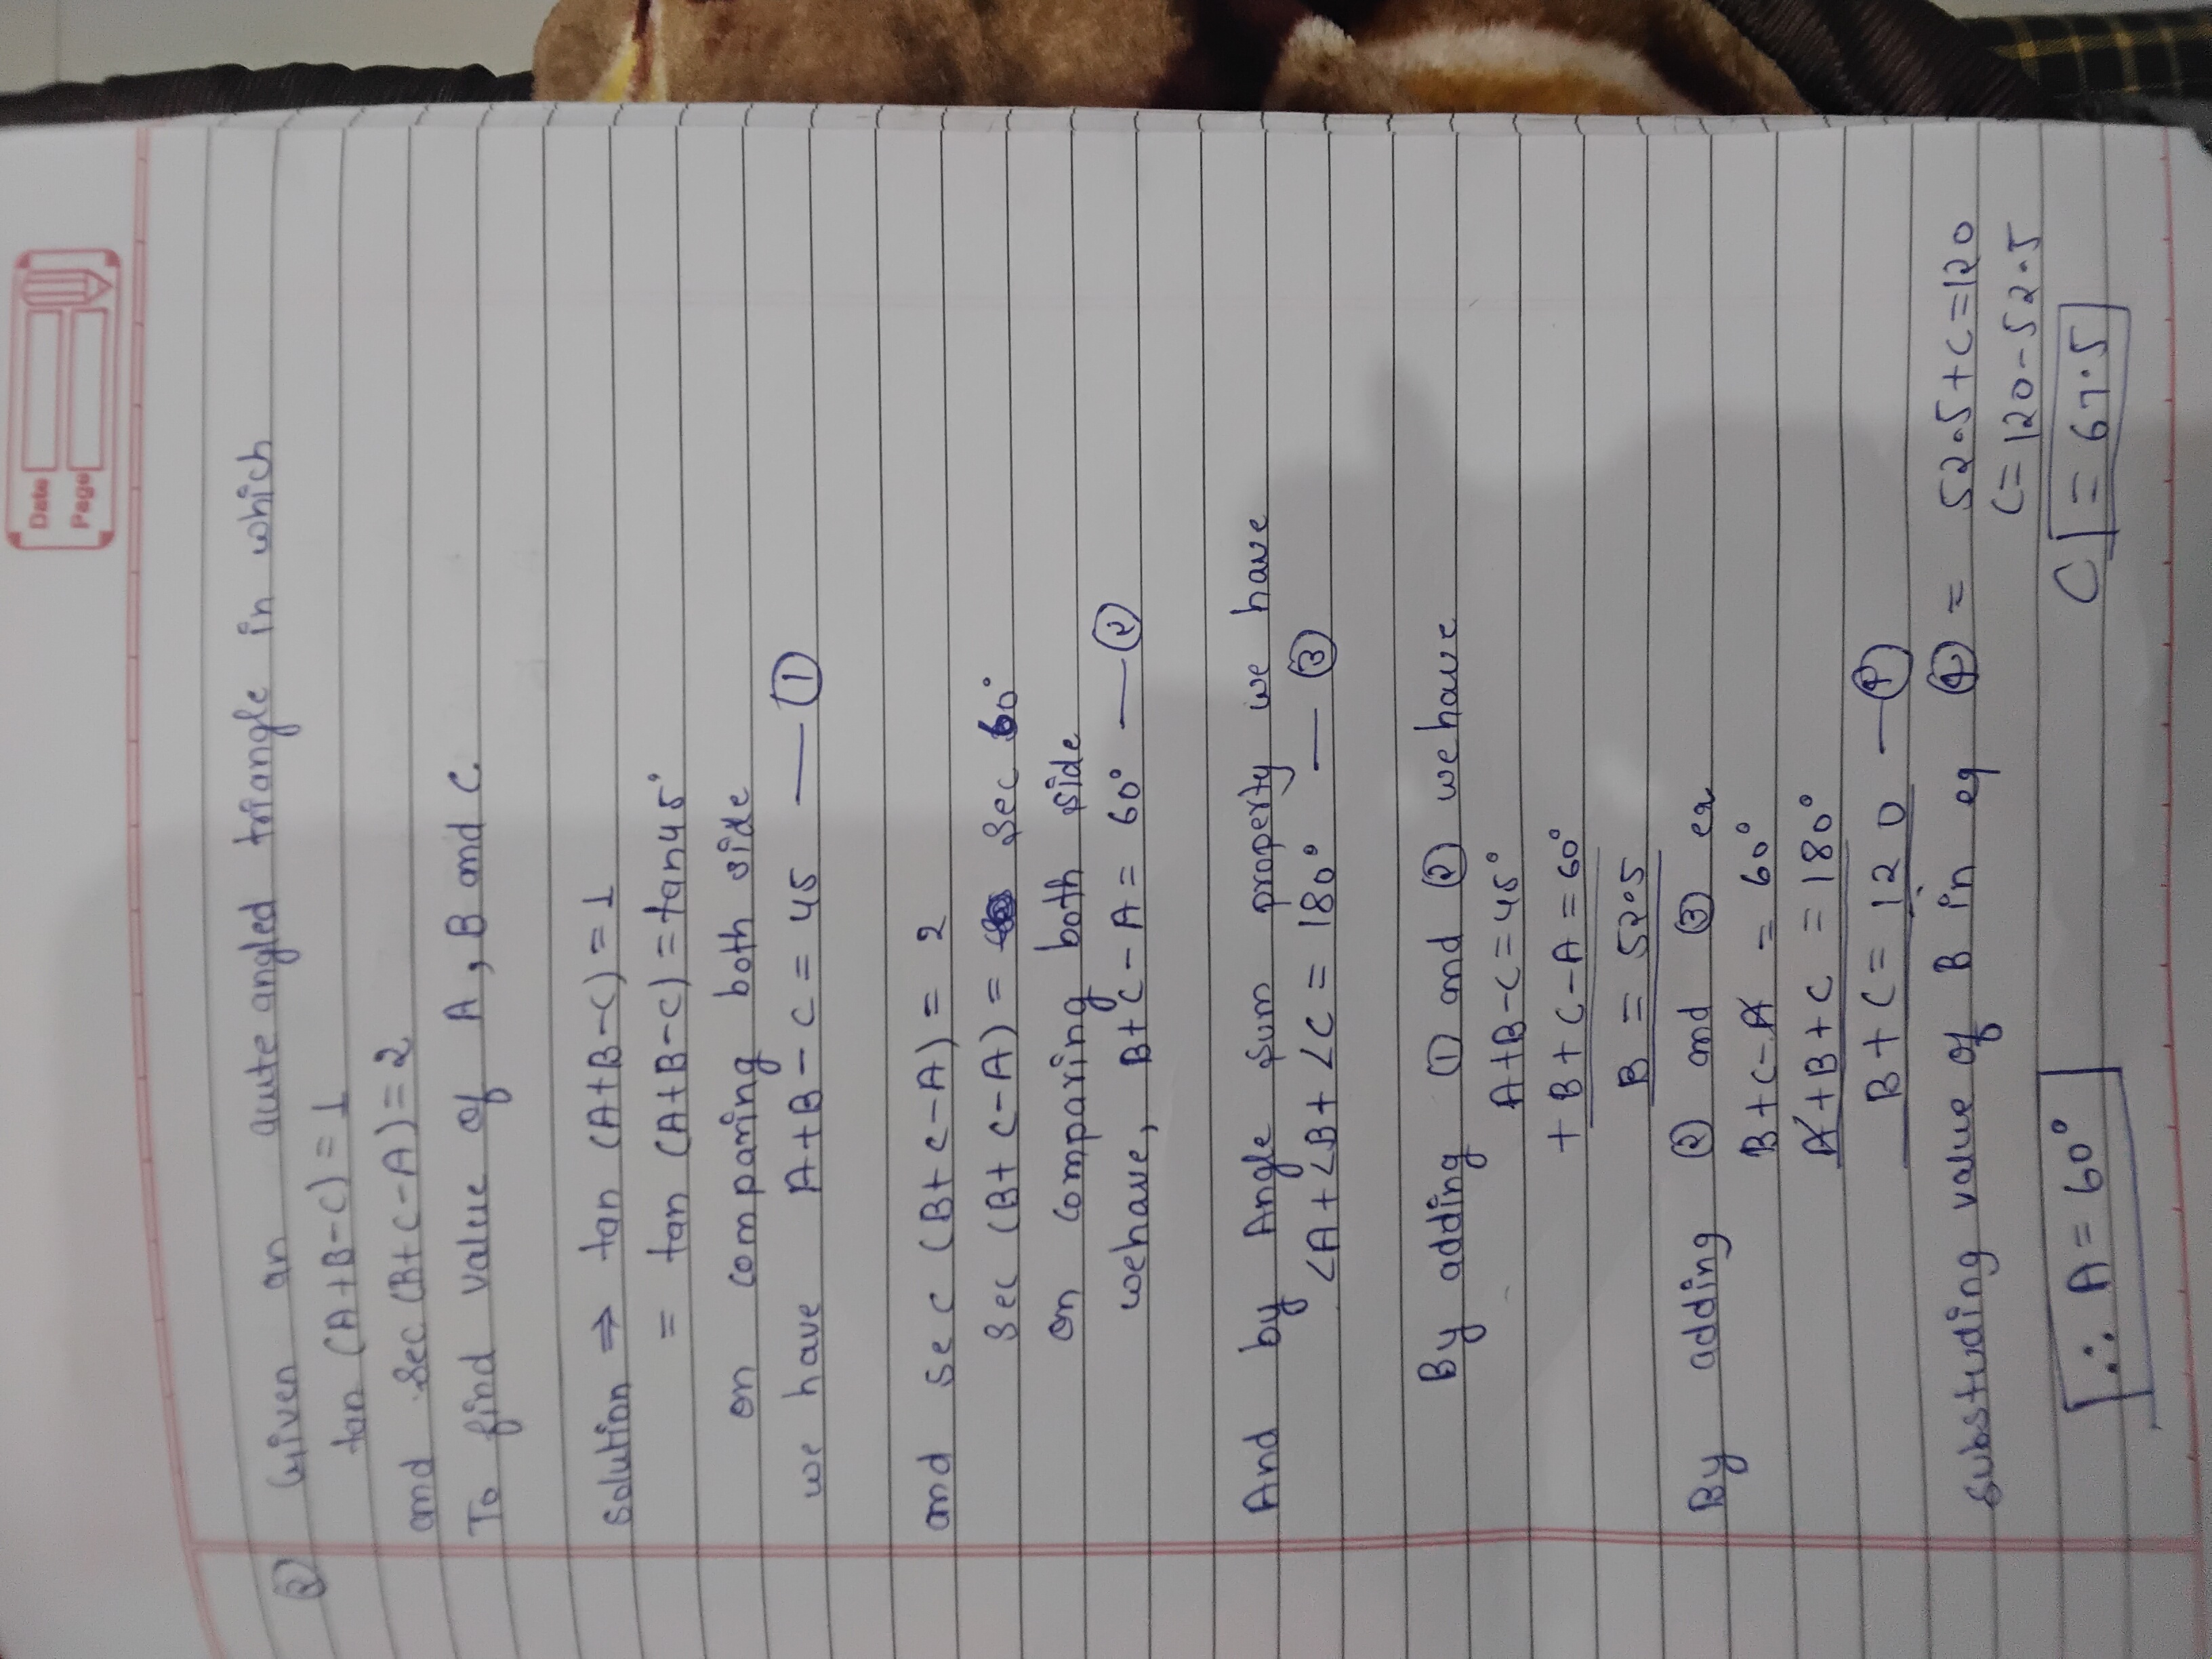 Date
Page
② Given an aute angled triangle in which
tan (A+B-C) = 1
and Sec (B+C-A) = 2
To find value of A, B and C.
Solution ⇒ tan (A+B-C) = 1
= tan (A+B-C) = tan45°
on comparing both side
we have A+B-C = 45 — ①
and sec (B+C-A) = 2
Sec (B+C-A) = Sec 60°
on comparing both side
wehave, B+C-A = 60° — ②
And by Angle sum property we have
∠A+∠B+∠C = 180° — ③
By adding ① and ② we have
A+B-C = 45°
+ B+C-A = 60°
B = 52.5
By adding ② and ③ eq
B+C-A = 60°
A+B+C = 180°
B+C = 120 — ④
Substuding value of B in eq ④ = 52.5+C=120
C = 120-52.5
∴ A = 60° C = 67.5